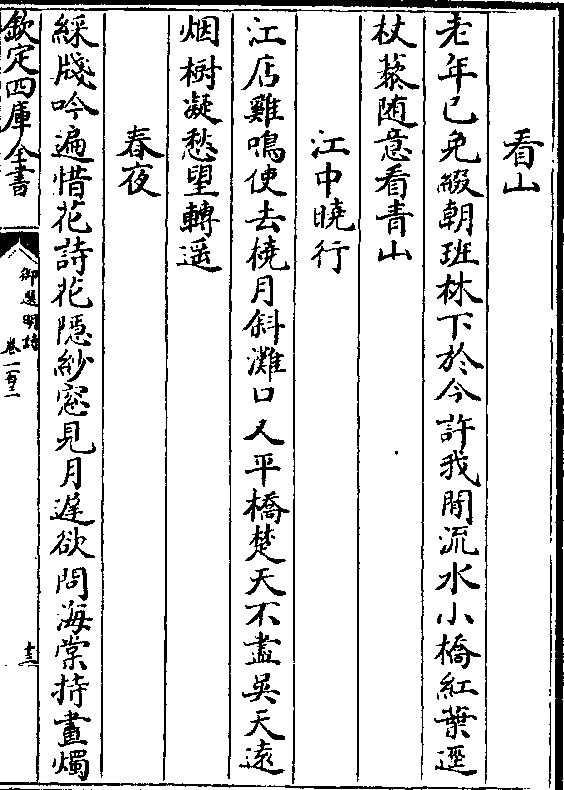 看山
老年已免綴朝班林下於今許我閒流水小橋紅葉逕
杖藜随意看青山
江中曉行
江店雞鳴便去橈月斜灘口又平橋楚天不盡吳天遠
烟樹凝愁望轉遥
春夜
綵牋吟遍惜花詩花隱紗窓見月遲欲問海棠持畫燭
欽定四庫全書
御選明詩
卷一百二
十三